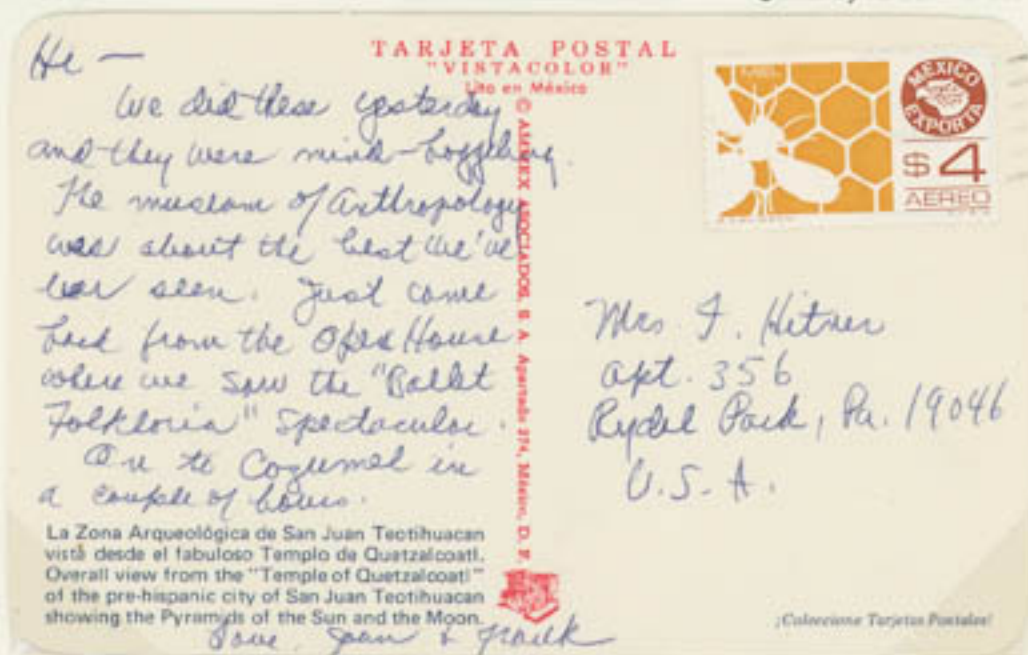 TARJETA POSTAL
"VISTACOLOR"
Lito en México
Hi —
We did these yesterday
and they were mind-boggling.
The museum of Anthropology
was about the best we've
ever seen. Just came
back from the Opera House
where we saw the "Ballet
Folkloria" Spectacular.
On to Cozumel in
a couple of hours.
La Zona Arqueológica de San Juan Teotihuacan
vista desde el fabuloso Templo de Quetzalcoatl.
Overall view from the "Temple of Quetzalcoatl"
of the pre-hispanic city of San Juan Teotihuacan
showing the Pyramids of the Sun and the Moon.
Love, Joan + Frank
© AMMEX ASOCIADOS, S. A. Apartado 274, México, D. F.
MEXICO
EXPORTA
$4
AEREO
Mrs F. Hitner
Apt. 356
Rydal Park, Pa. 19046
U.S.A.
¡Coleccione Tarjetas Postales!